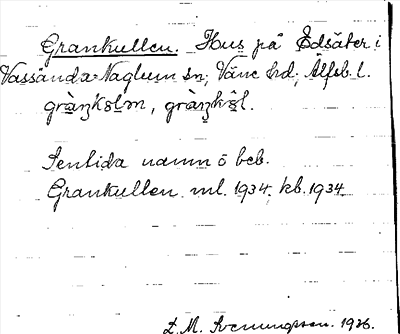 Grankullen. Hus på Edsäter i
Vassända-Naglum sn; Väne hd; Älfsb. l.
gràŋkɵlɵn, gràŋkɵ̂l.
Sentida namn o beb.
Grankullen ml. 1934, kb. 1934
L. M. Svenungsson. 1936.